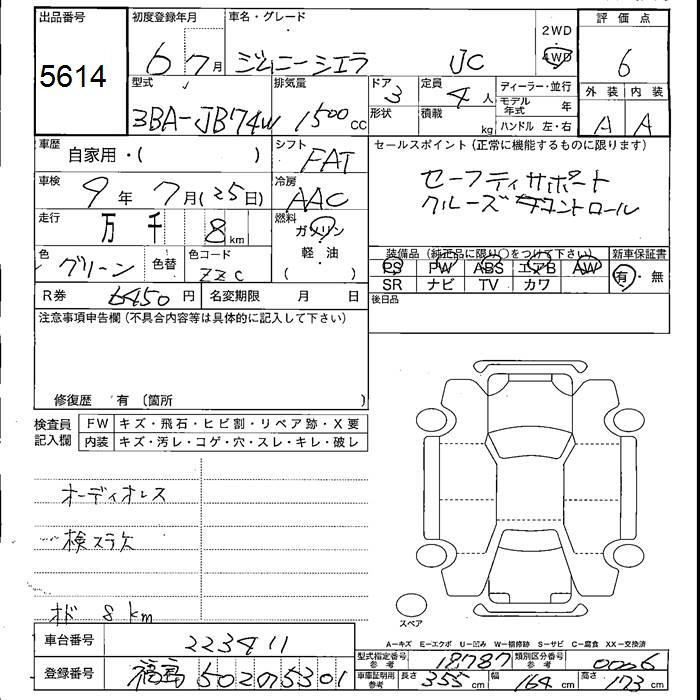 出品番号
5614
初度登録年月
6 7月
車名・グレード
ジムニーシエラ JC
2WD
4WD
評価点
6
型式
3BA-JB74W
排気量
1500cc
ドア
3
形状
定員
4人
積載
kg
ディーラー・並行
モデル年式 年
ハンドル 左・右
外装 内装
A A
車歴
自家用・( )
シフト
FAT
セールスポイント(正常に機能するものに限ります)
セーフティサポート
クルーズコントロール
車検
9年 7月(25日)
冷房
AAC
走行
万 千 8km
燃料
ガソリン
軽・油
( )
色
グリーン
色替
色コード
ZZC
装備品(純正品に限り○をつけて下さい)
新車保証書
PS PW ABS エアB AW
SR ナビ TV カワ
有・無
R券 6450円
名変期限 月 日
後日品
注意事項申告欄(不具合内容等は具体的に記入して下さい)
修復歴 有(箇所 )
検査員記入欄
FW キズ・飛石・ヒビ割・リペア跡・X要
内装 キズ・汚レ・コゲ・穴・スレ・キレ・破レ
オーディオレス
検ステ欠
オド 8km
スペア
A-キズ E-エクボ U-凹み W-補修跡 S-サビ C-腐食 XX-交換済
車台番号 223411
型式指定番号参考 18787
類別区分番号参考 0006
登録番号
車庫証明用参考 長さ 355cm 幅 164cm 高さ 173cm